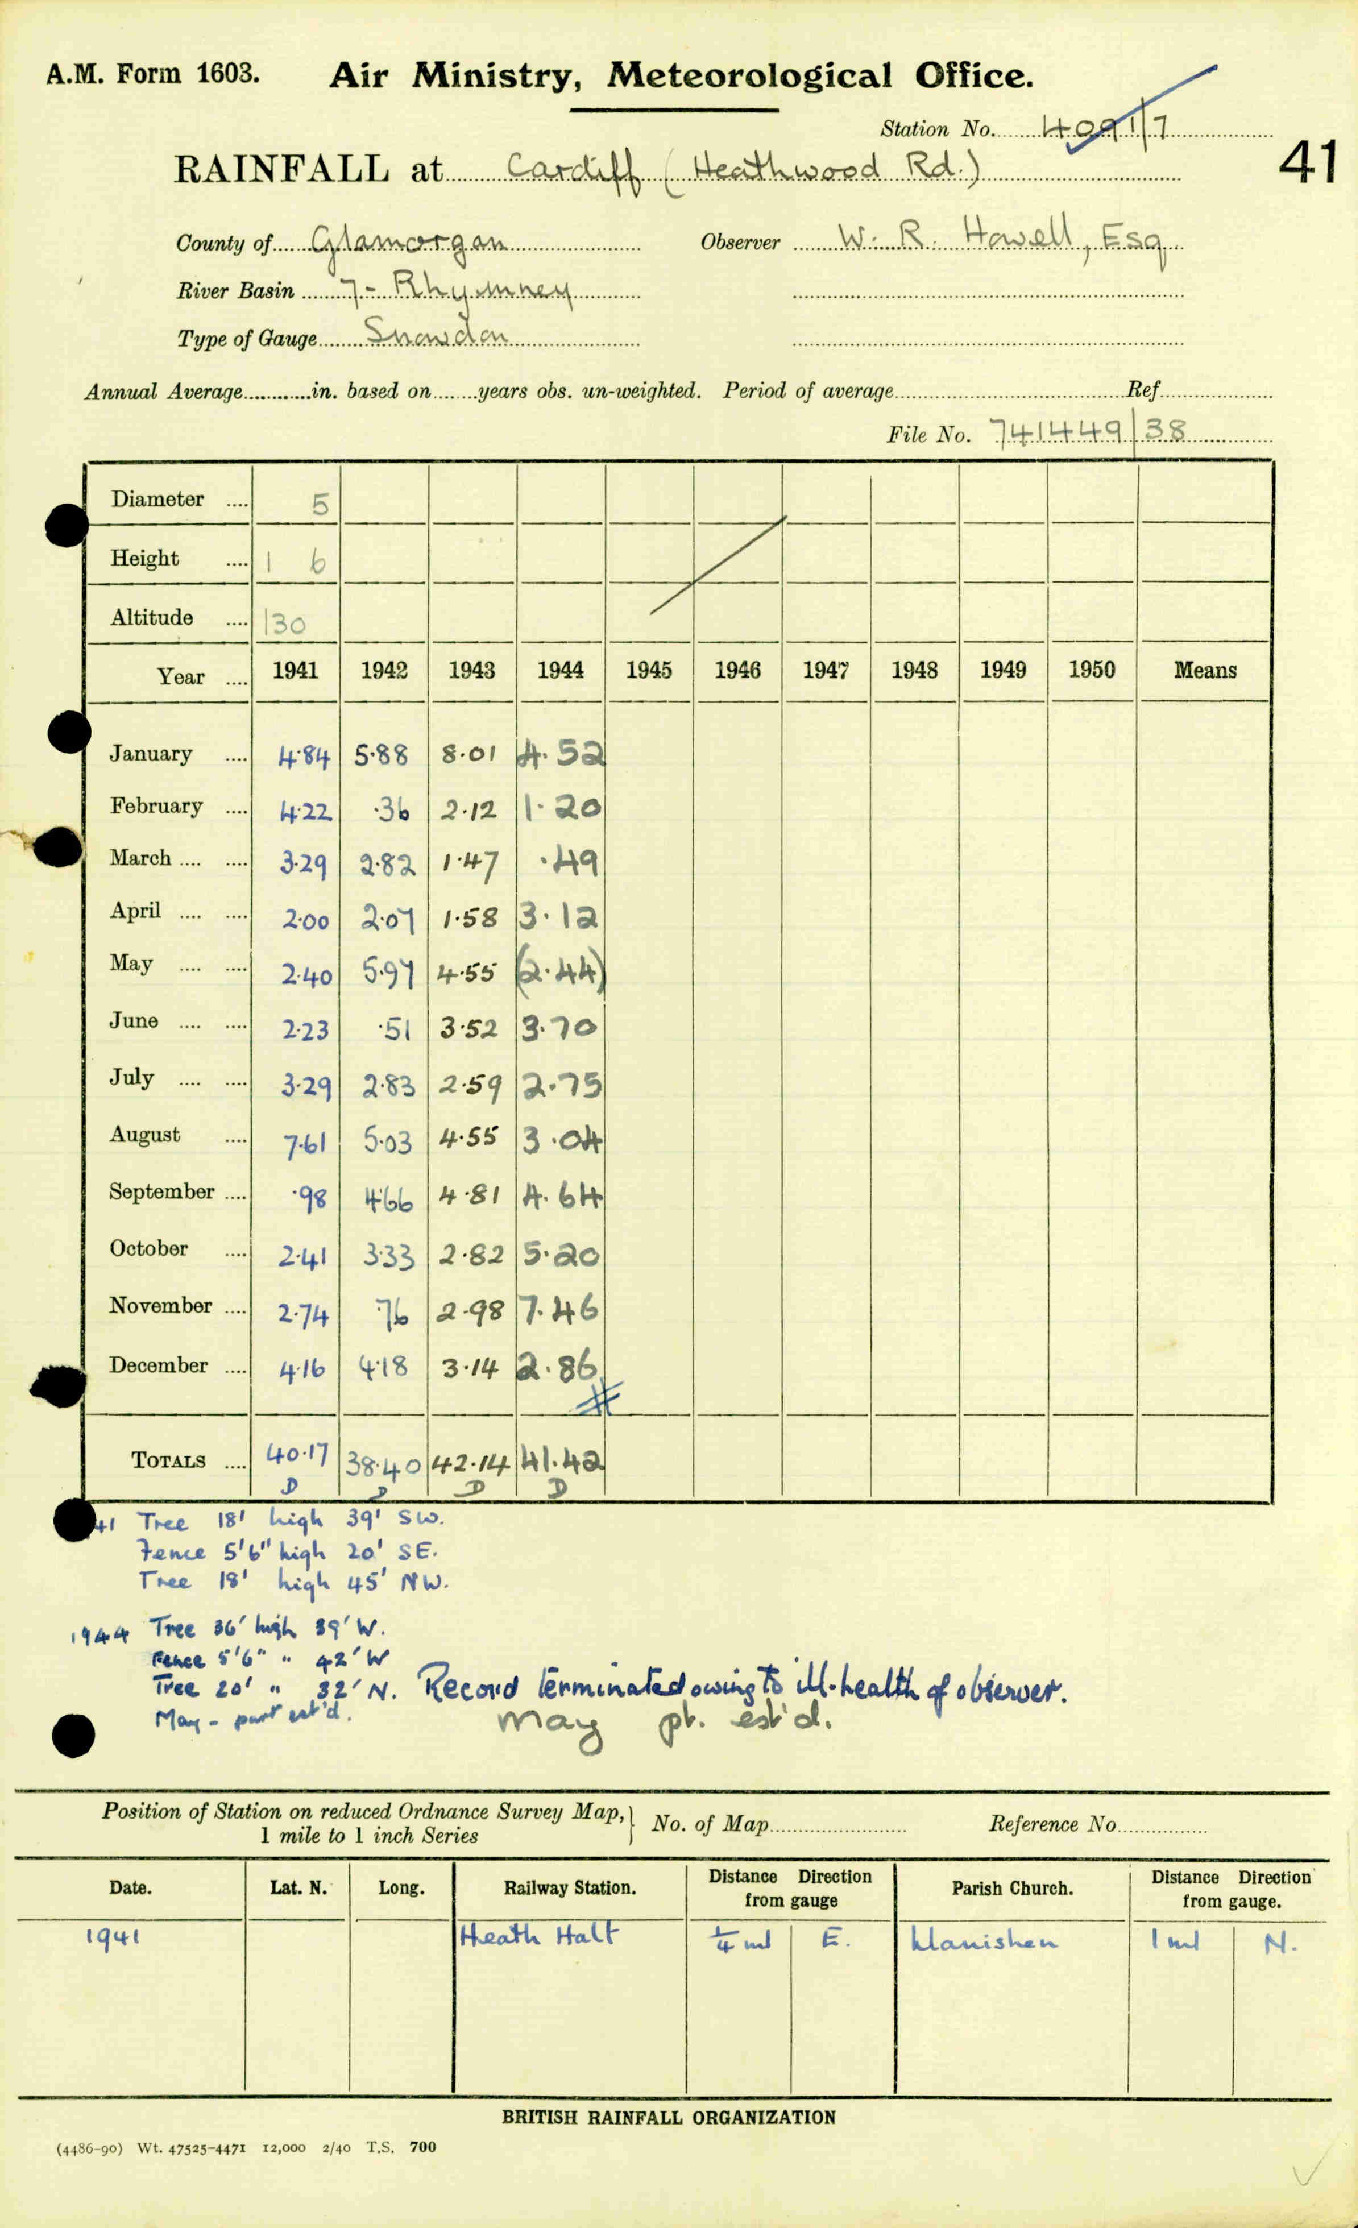 A.M. Form 1603. Air Ministry, Meteorological Office.
Station No. 4091/7
41
RAINFALL at Cardiff (Heathwood Rd.)
County of Glamorgan Observer W. R. Howell, Esq
River Basin 7 - Rhymney
Type of Gauge Snowdon
Annual Average in. based on years obs. un-weighted. Period of average Ref.
File No. 741449/38
Diameter .... 5
Height .... 1 6
Altitude .... 130
Year .... 1941 1942 1943 1944 1945 1946 1947 1948 1949 1950 Means
January .... 4·84 5·88 8·01 4.52
February .... 4·22 ·36 2·12 1.20
March .... .... 3·29 2·82 1·47 .49
April .... .... 2·00 2·07 1·58 3.12
May .... .... 2·40 5·97 4·55 (2.44)
June .... .... 2·23 ·51 3·52 3.70
July .... .... 3·29 2·83 2·59 2.75
August .... 7·61 5·03 4·55 3.04
September .... ·98 4·66 4·81 4.64
October .... 2·41 3·33 2·82 5.20
November .... 2·74 ·76 2·98 7.46
December .... 4·16 4·18 3·14 2.86
#
TOTALS .... 40·17 38·40 42·14 41.42
D D D D
41 Tree 18' high 39' SW.
Fence 5'6" high 20' SE.
Tree 18' high 45' NW.
1944 Tree 36' high 39' W.
Fence 5'6" " 42' W
Tree 20' " 32' N. Record terminated owing to ill-health of observer.
May - part est'd. May pt. est'd.
Position of Station on reduced Ordnance Survey Map,} No. of Map Reference No.
1 mile to 1 inch Series
Date. Lat. N. Long. Railway Station. Distance Direction from gauge Parish Church. Distance Direction from gauge.
1941 Heath Halt ¼ ml E. Llanishen 1 ml N.
BRITISH RAINFALL ORGANIZATION
(4486-90) Wt. 47525-4471 12,000 2/40 T.S. 700